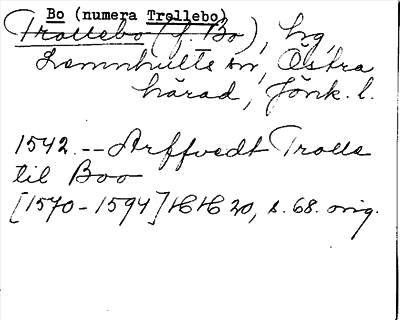 Bo (numera Trollebo)
Trollebo (f. Bo), hg,
Lemnhults sn, Östra
härad, Jönk. l.
1542. -- Arffvedt Trolle
til Boo
[1570-1594] HH 20, s. 68. orig.